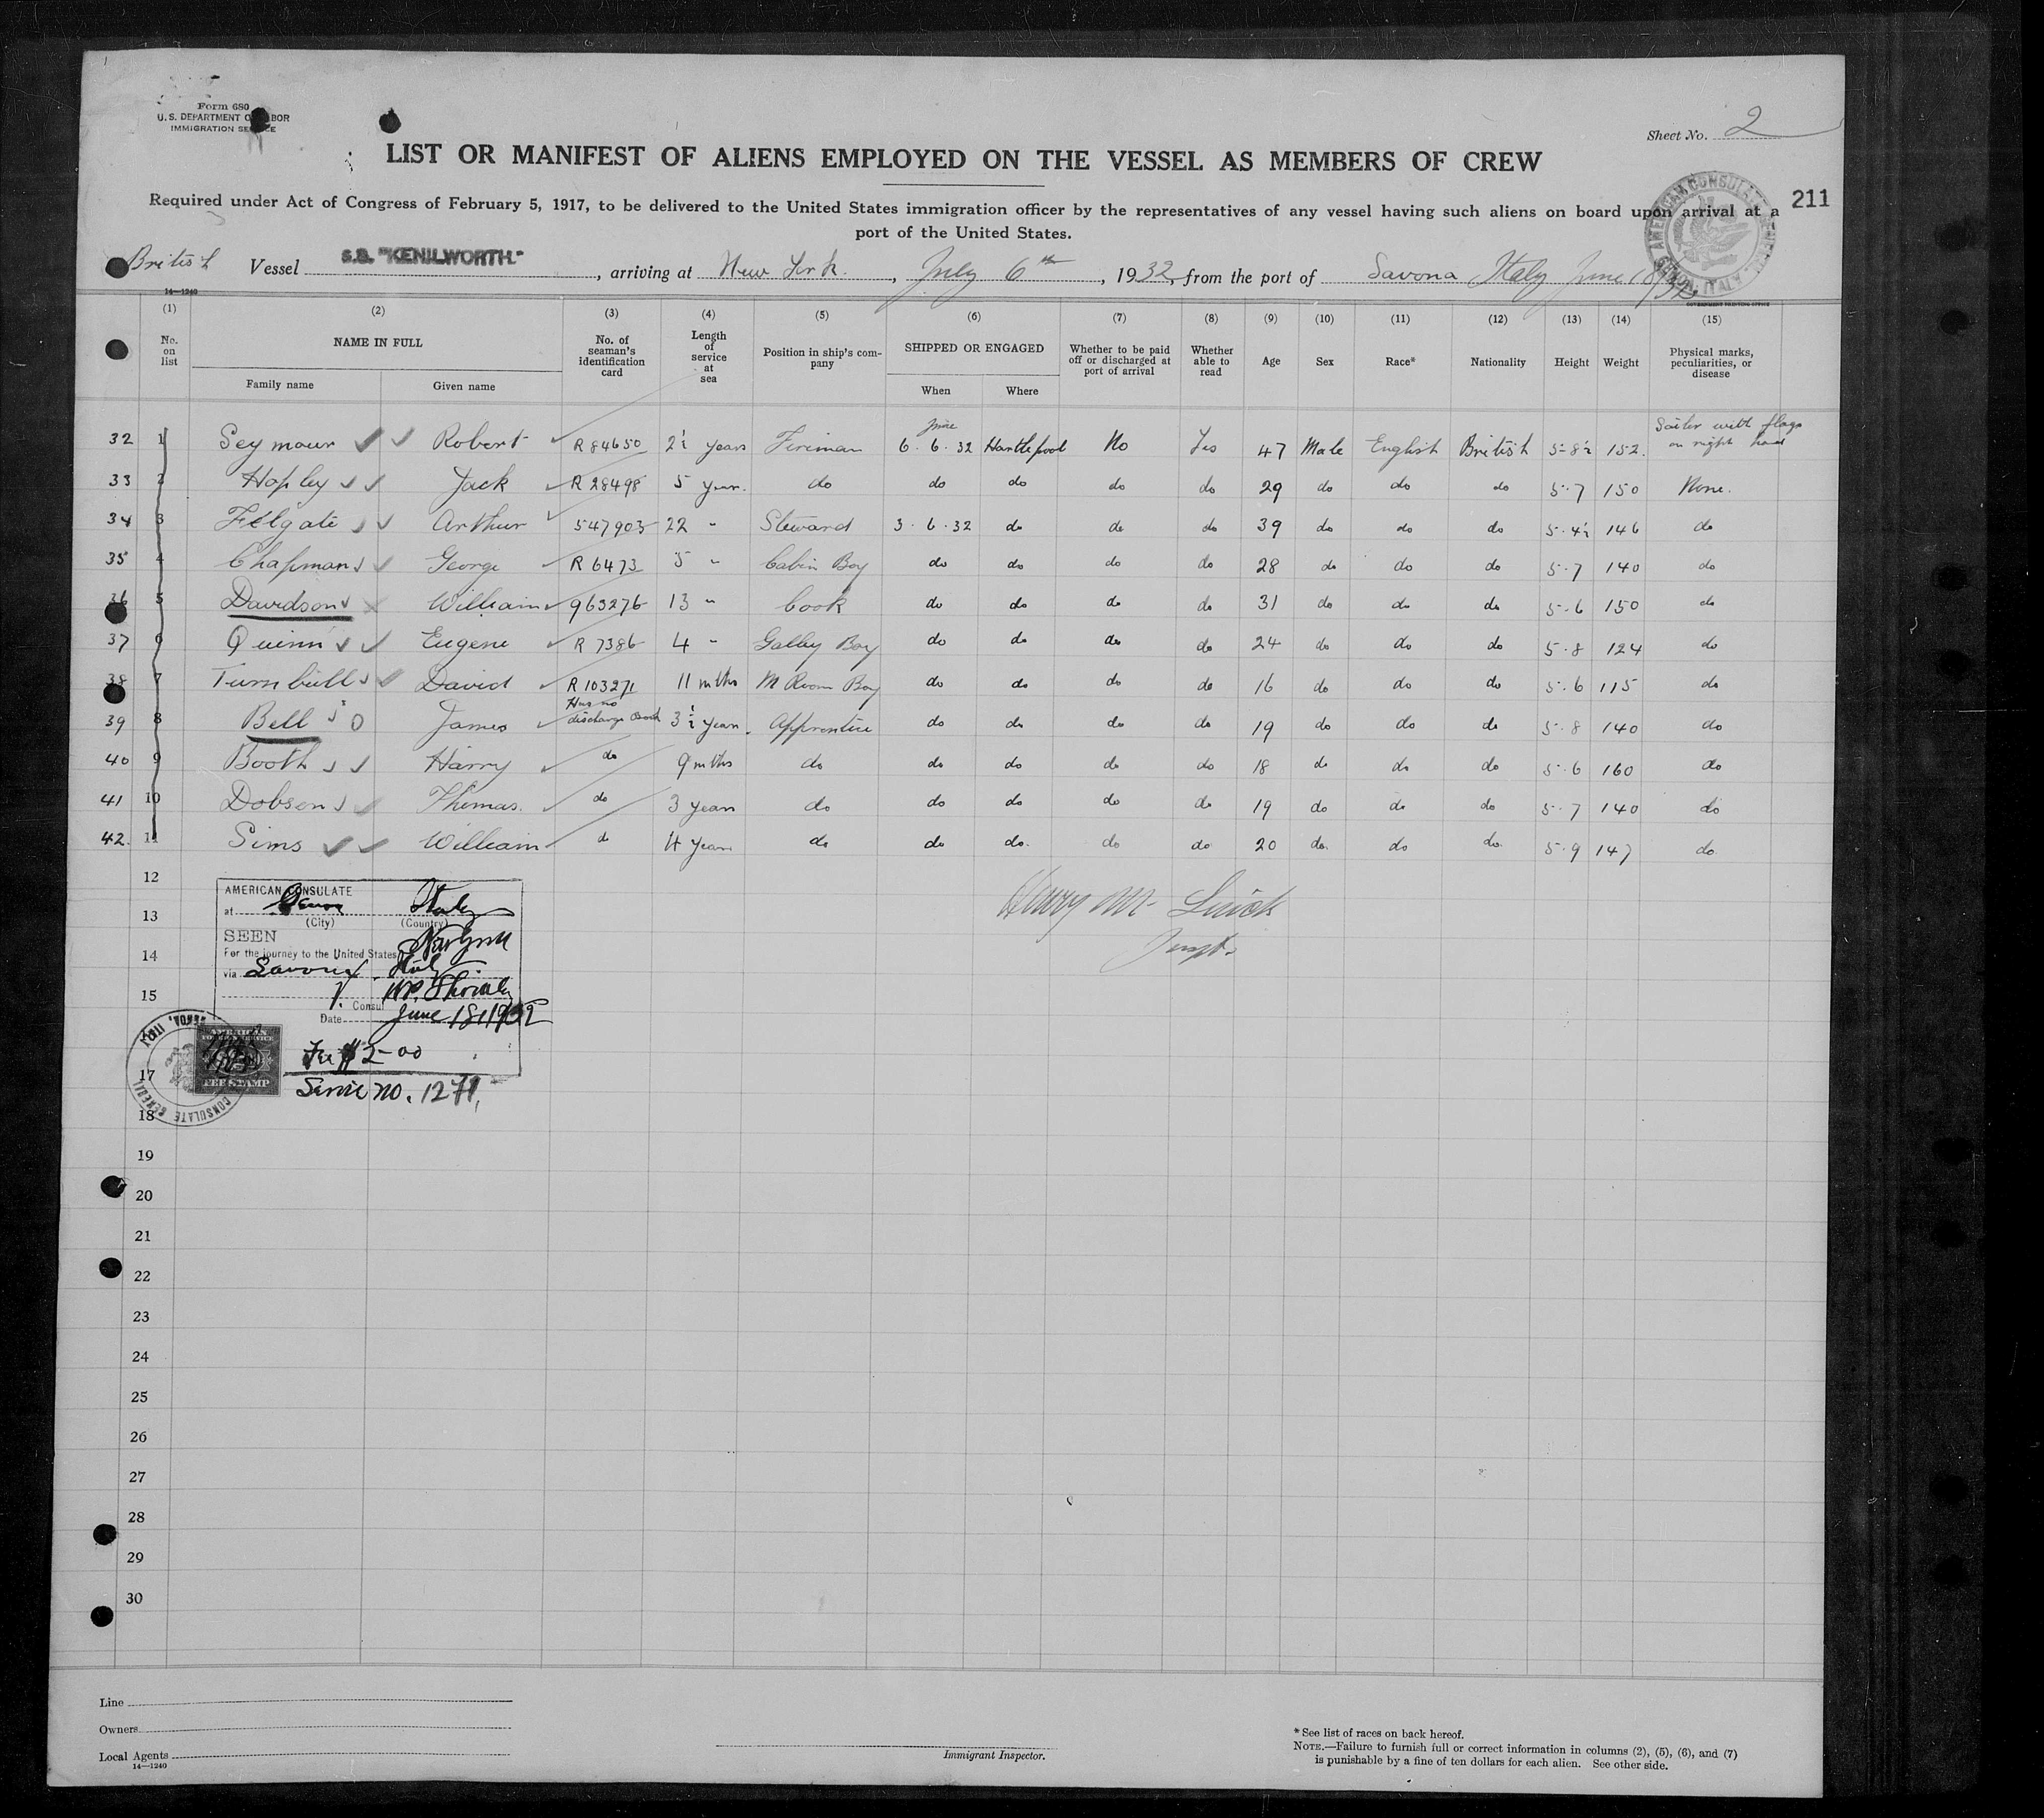 Form 680
U. S. DEPARTMENT OF LABOR
IMMIGRATION SERVICE
Sheet No. 2
LIST OR MANIFEST OF ALIENS EMPLOYED ON THE VESSEL AS MEMBERS OF CREW
211
Required under Act of Congress of February 5, 1917, to be delivered to the United States immigration officer by the representatives of any vessel having such aliens on board upon arrival at a
port of the United States.
AMERICAN CONSULATE GENERAL GENOA, ITALY
British Vessel S.S. "KENILWORTH", arriving at New York, July 6th, 1932, from the port of Savona Italy June 18/32
14—1240
GOVERNMENT PRINTING OFFICE
(1) (2) (3) (4) (5) (6) (7) (8) (9) (10) (11) (12) (13) (14) (15)
No. on list NAME IN FULL Family name Given name No. of seaman's identification card Length of service at sea Position in ship's company SHIPPED OR ENGAGED When Where Whether to be paid off or discharged at port of arrival Whether able to read Age Sex Race* Nationality Height Weight Physical marks, peculiarities, or disease
32 1 Seymour Robert R 84650 2½ years Fireman June 6.6.32 Hartlepool No Yes 47 Male English British 5-8½ 152. Sailor with flags on right hand
33 2 Hopley Jack R 28498 5 year. do do do do do 29 do do do 5.7 150 None.
34 3 Felgate Arthur 547903 22 " Steward 3.6.32 do do do 39 do do do 5.4½ 146 do
35 4 Chapman George R 6473 5 " Cabin Boy do do do do 28 do do do 5.7 140 do
36 5 Davidson William 963276 13 " Cook do do do do 31 do do do 5.6 150 do
37 6 Quinn Eugene R 7386 4 " Galley Boy do do do do 24 do do do 5.8 124 do
38 7 Turnbull David R 103271 11 mths M Room Boy do do do do 16 do do do 5.6 115 do
39 8 Bell James Has no discharge Book 3½ year. Apprentice do do do do 19 do do do 5.8 140 do
40 9 Booth Harry do 9 mths do do do do do 18 do do do 5.6 160 do
41 10 Dobson Thomas. do 3 years do do do do do 19 do do do 5.7 140 do
42. 11 Sims William do 4 years do do do. do do 20 do. do do. 5.9 147 do.
12
13
14
15
17
18
19
20
21
22
23
24
25
26
27
28
29
30
AMERICAN CONSULATE
at Genoa Italy
(City) (Country)
SEEN
For the journey to the United States
via Savona, Italy
Consul
Date June 18, 1932
Fee $2-00
Service no. 1271.
AMERICAN FOREIGN SERVICE
FEE STAMP
CONSULATE GENERAL GENOA, ITALY
Harry
Inspt.
Line
Owners
Local Agents
14—1240
Immigrant Inspector.
* See list of races on back hereof.
NOTE.—Failure to furnish full or correct information in columns (2), (5), (6), and (7)
is punishable by a fine of ten dollars for each alien. See other side.